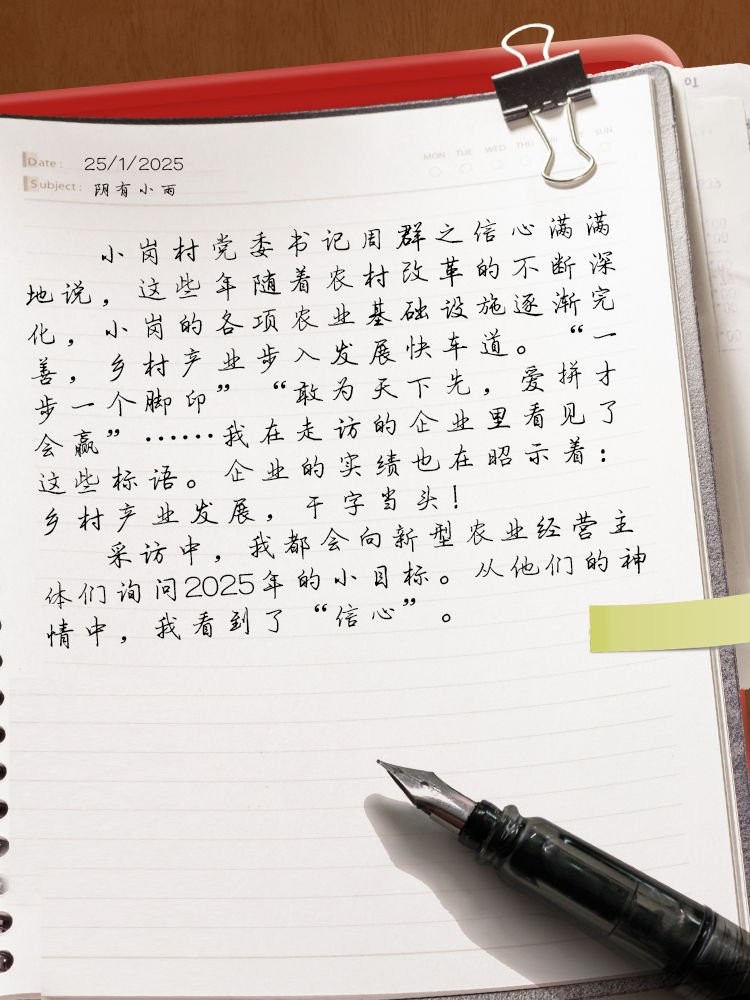 Date: 25/1/2025
MON TUE WED THU SUN
Subject: 阴有小雨
小岗村党委书记周群之信心满满
地说，这些年随着农村改革的不断深
化，小岗的各项农业基础设施逐渐完
善，乡村产业步入发展快车道。“一
步一个脚印”“敢为天下先，爱拼才
会赢”……我在走访的企业里看见了
这些标语。企业的实绩也在昭示着：
乡村产业发展，干字当头！
采访中，我都会向新型农业经营主
体们询问2025年的小目标。从他们的神
情中，我看到了“信心”。
To